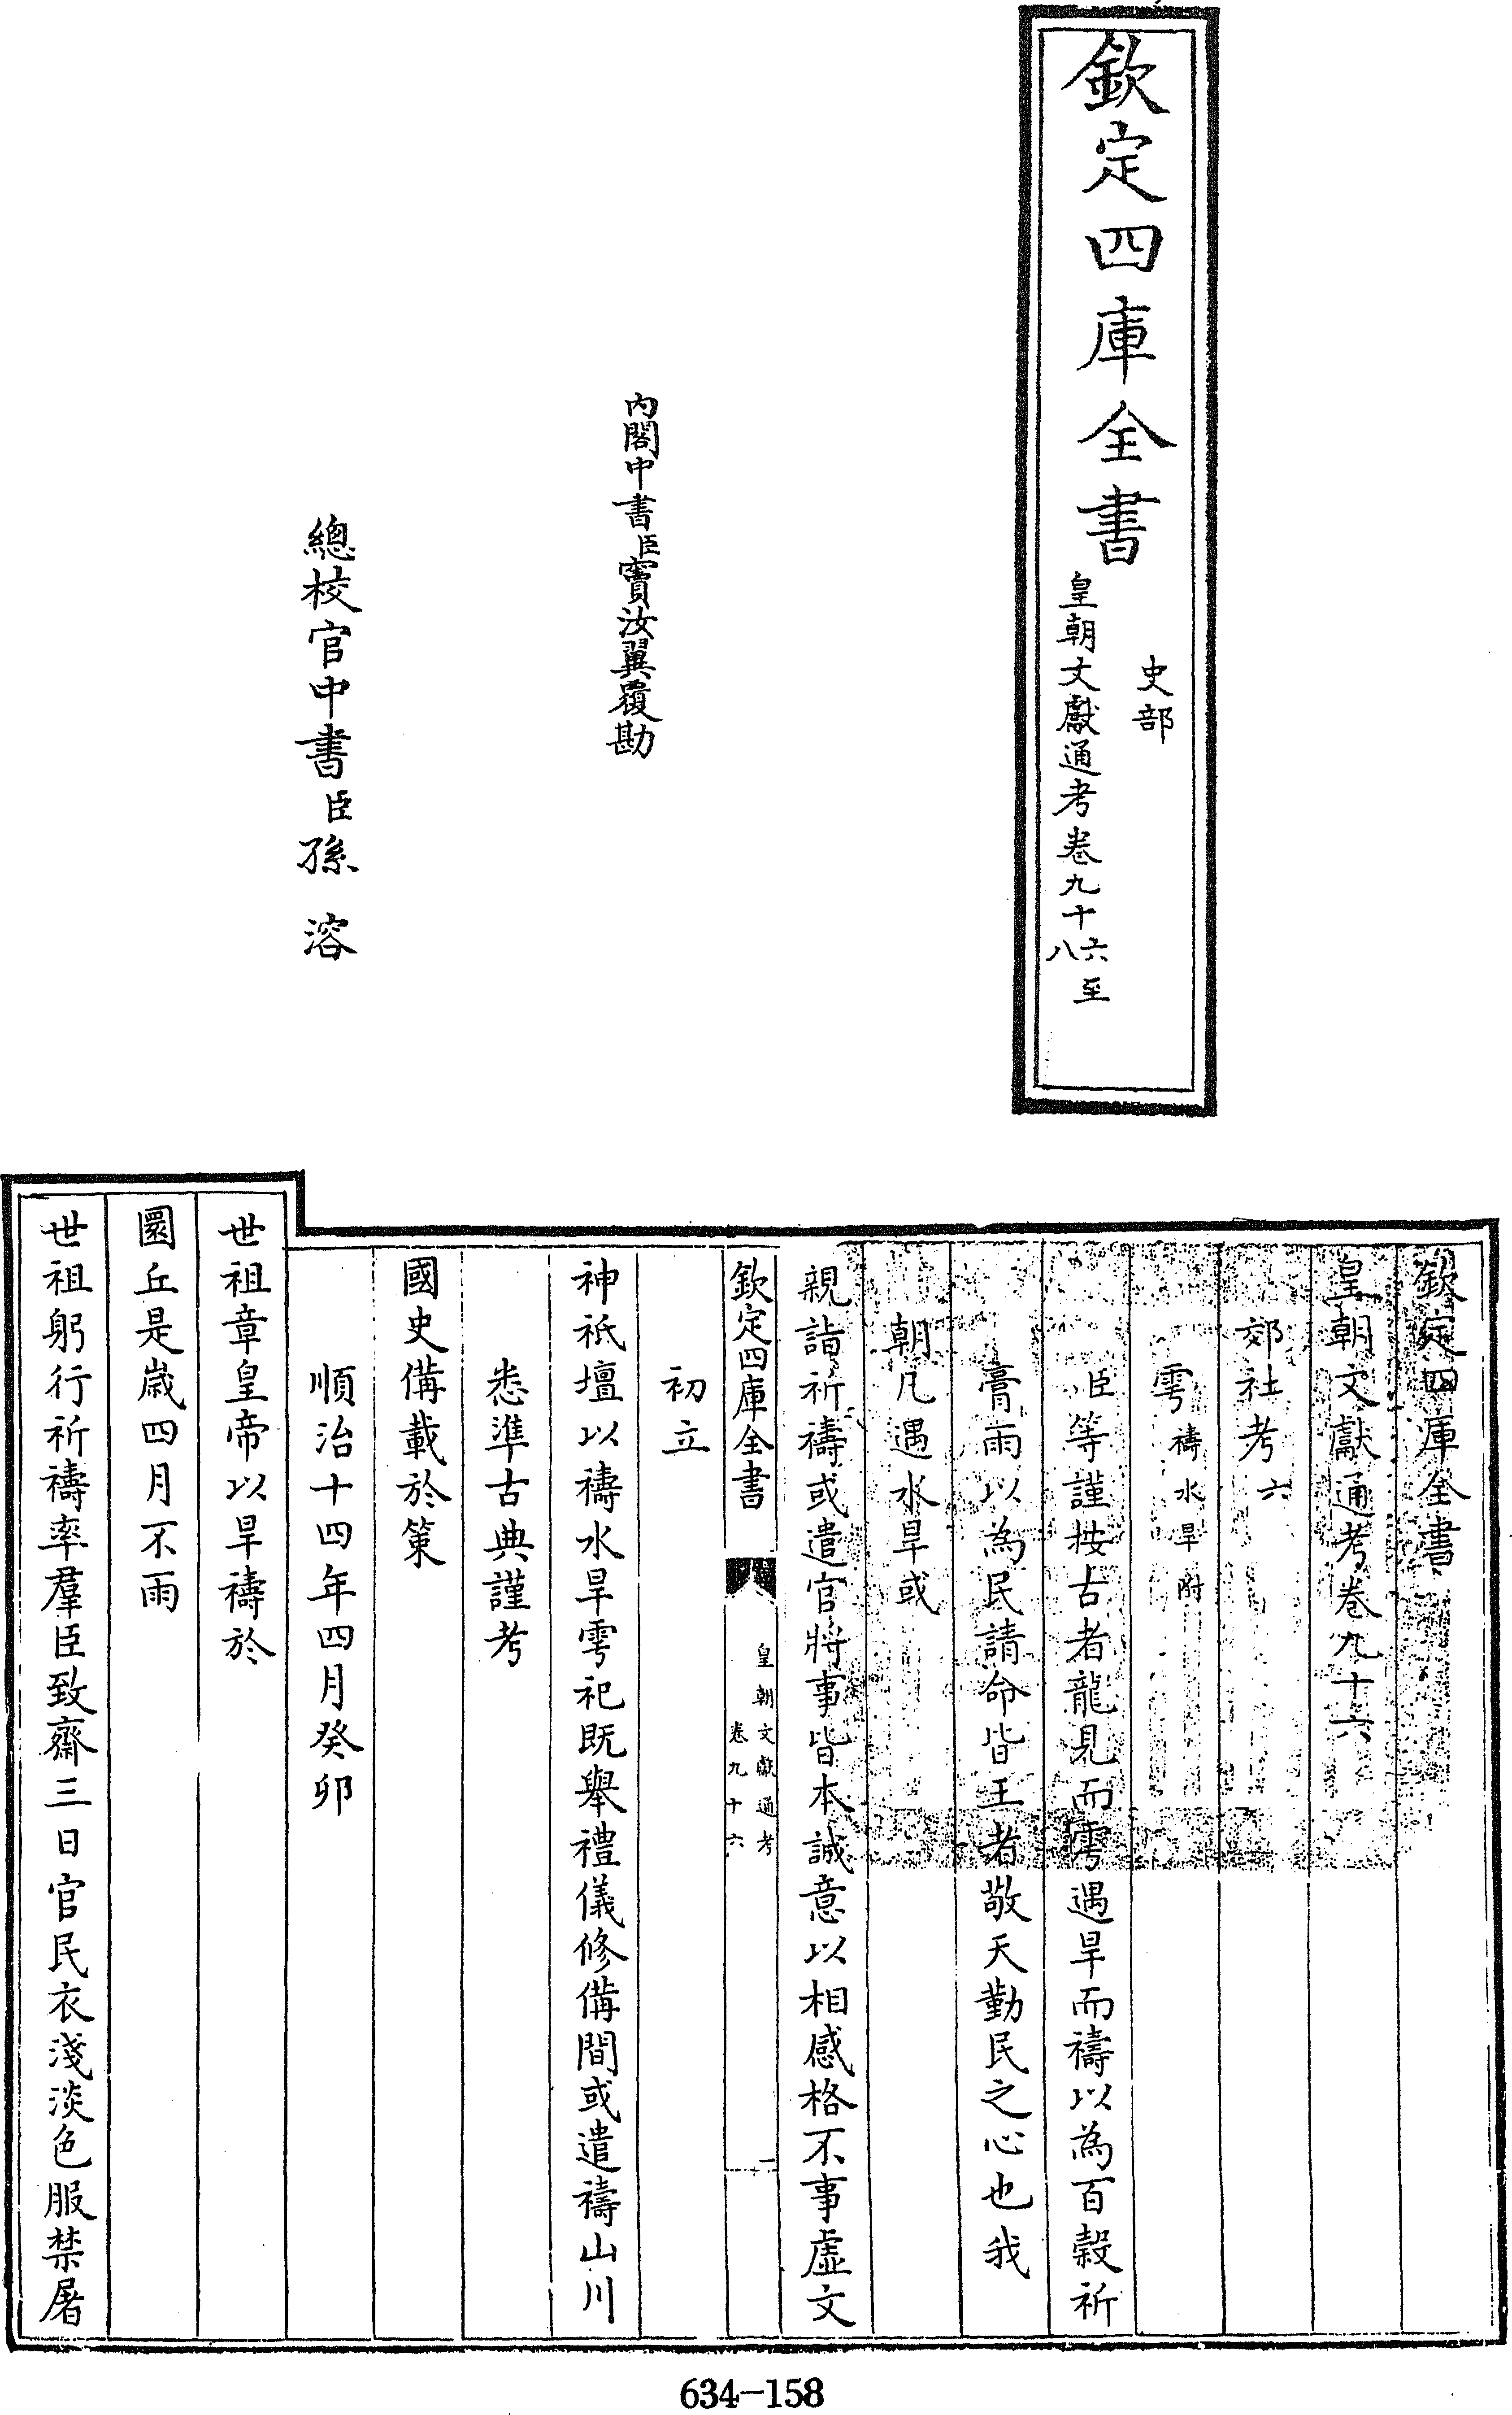 欽定四庫全書
史部
皇朝文獻通考卷九十六至
八
內閣中書臣竇汝翼覆勘
總校官中書臣孫溶
欽定四庫全書
皇朝文獻通考卷九十六
郊社考六
雩禱水旱附
臣等謹按古者龍見而雩遇旱而禱以為百穀祈
膏雨以為民請命皆王者敬天勤民之心也我
朝凡遇水旱或
親詣祈禱或遣官將事皆本誠意以相感格不事虛文
欽定四庫全書
皇朝文獻通考
卷九十六
一
初立
神祇壇以禱水旱雩祀既舉禮儀修備間或遣禱山川
悉準古典謹考
國史備載於策
順治十四年四月癸卯
世祖章皇帝以旱禱於
圜丘是歲四月不雨
世祖躬行祈禱率羣臣致齋三日官民衣淺淡色服禁屠
634-158